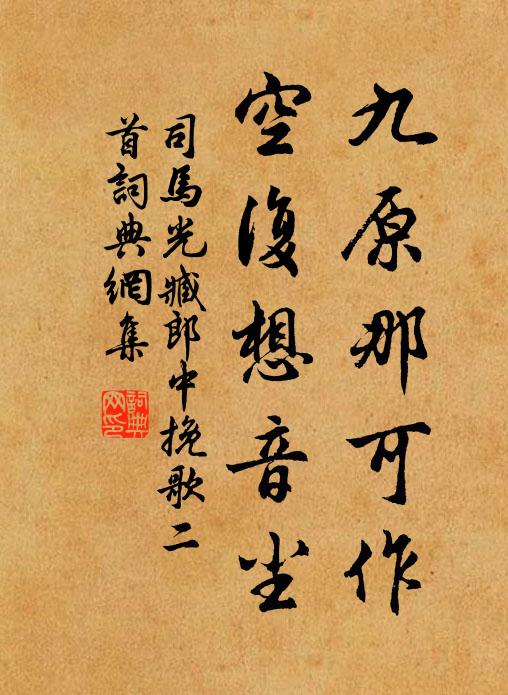 九原那可作
空復想音尘
司馬光臧郎中挽歌二
首詞典網集
詞典
网印